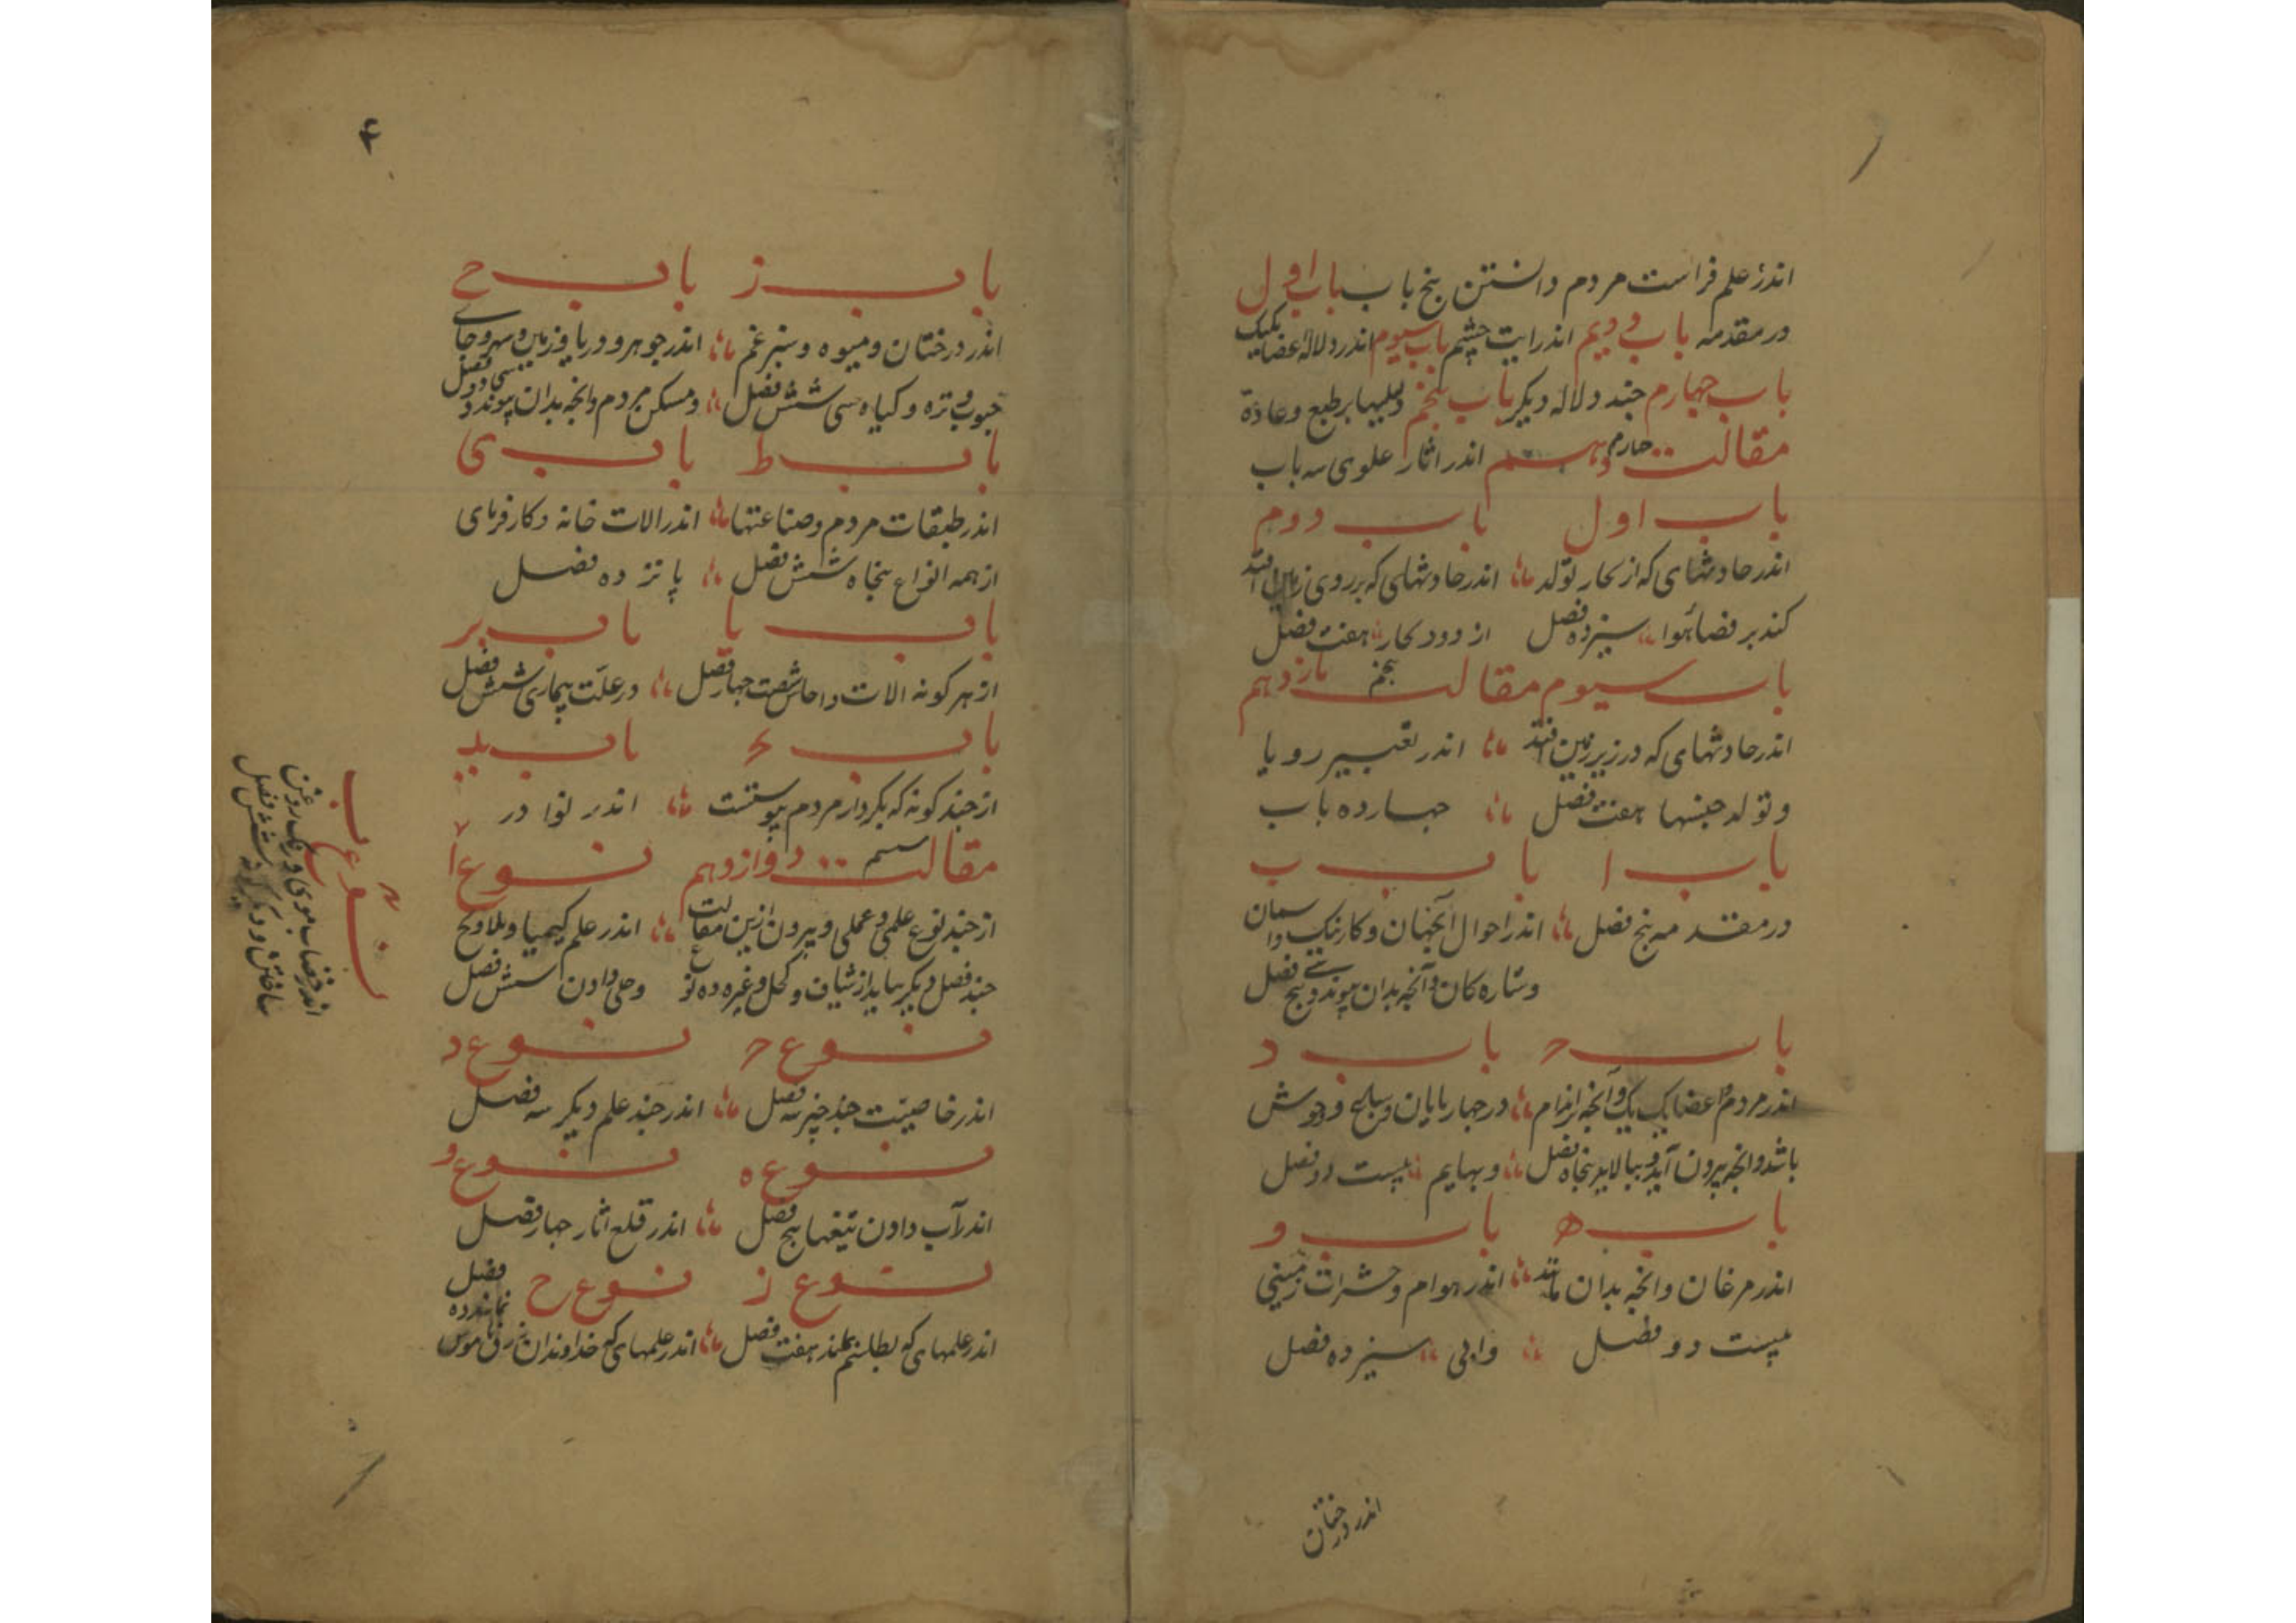 اندر علم فراست مردم دانستن پنج باب باب اول
در مقدمه باب دویم اندر ایت چشم باب سیوم اندر دلاله اعضا یکیک
باب چهارم چند دلاله دیکر باب پنجم دلیلها بر طبع و عادة
مقالت چهارم دهم اندر اثار علوی سه باب
باب اول باب دوم
اندر حادثهای که از بخار تولد اندر حادثهای که بر روی زمین افتد
کند بر فضا هوا سیزده فصل از دود بخار هفت فصل
باب سیوم مقالت پنجم پانزدهم
اندر حادثهای که در زیر زمین افتد اندر تعبیر رویا
و تولد جنسها هفت فصل چهارده باب
باب ا باب ب
در مقدمه پنج فصل اندر احوال آنجهان و کار نیک و اسمان
و ستاره کان و آنچه بدان پیوندد پنج فصل
باب ح باب د
اندر مردم و اعضا یک یک و آنچه بر اندام در چهار پایان و سباع و وحوش
باشد و انچه بیرون آید و بیالاید پنجاه فصل و بهایم بیست دو فصل
باب ه باب و
اندر مرغان و انچه بدان ماند اندر هوام و حشرات زمینی
بیست دو فصل وابی سیزده فصل
اندر درختان
۴
باب ز باب ح
اندر درختان و میوه و سبر غم اندر جوهر و دریا و زمین و سهر و جای
حبوب و تره و کیاه سی شش فصل و مسکن مردم و انچه بدان پیوندد سی دو فصل
باب ط باب ی
اندر طبقات مردم و صناعتها اندر الات خانه و کار فرمای
از همه انواع پنجاه شش فصل پانزده فصل
باب یا باب یب
از هر کونه الات و اجناس شصت چهار فصل در علت بیماری شش فصل
باب یح باب ید
از چند کونه که بکردار مردم پیوستست اندر نوا در
مقالت ششم دوازدهم نوع ا
از چند نوع علمی و عملی و بیرون ازین مقالت اندر علم کیمیا و ملاویح
چند فصل دیکر بیاید از شیاف و کحل و غیره ده نوع و حلی دادن شش فصل
نوع ح نوع د
اندر خاصیت چند چیز سه فصل اندر چند علم دیکر سه فصل
نوع ه نوع و
اندر آب دادن تیغها پنج فصل اندر قلع اثار چهار فصل
نوع ز نوع ح
اندر علمهای که بطلسم کنند هفت فصل اندر علمهای که خداوندان زرق و ناموس نمایند ده فصل
نوع ب
اندر خضاب موی و رنک روغن
ساختن و دیکر شش فصل